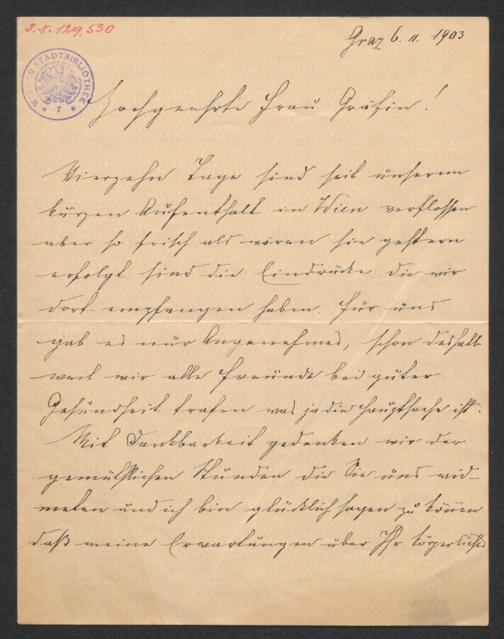 J.N. 129.530
Graz 6. 11. 1903
WIENER STADTBIBLIOTHEK
* 7 *
Hochgeehrte Frau Gräfin!
Vierzehn Tage sind seit unserem
kurzen Aufenthalt in Wien verflossen
aber so frisch als wären sie gestern
erfolgt sind die Eindrücke die wir
dort empfangen haben. Für uns
gab es nur Angenehmes, schon deshalb
weil wir alle Freunde bei guter
Gesundheit trafen was ja die Hauptsache ist.
Mit Dankbarkeit gedenken wir der
gemüthlichen Stunden die Sie uns wid-
meten und ich bin glücklich sagen zu können
daß meine Erwartungen über Ihr körperliches